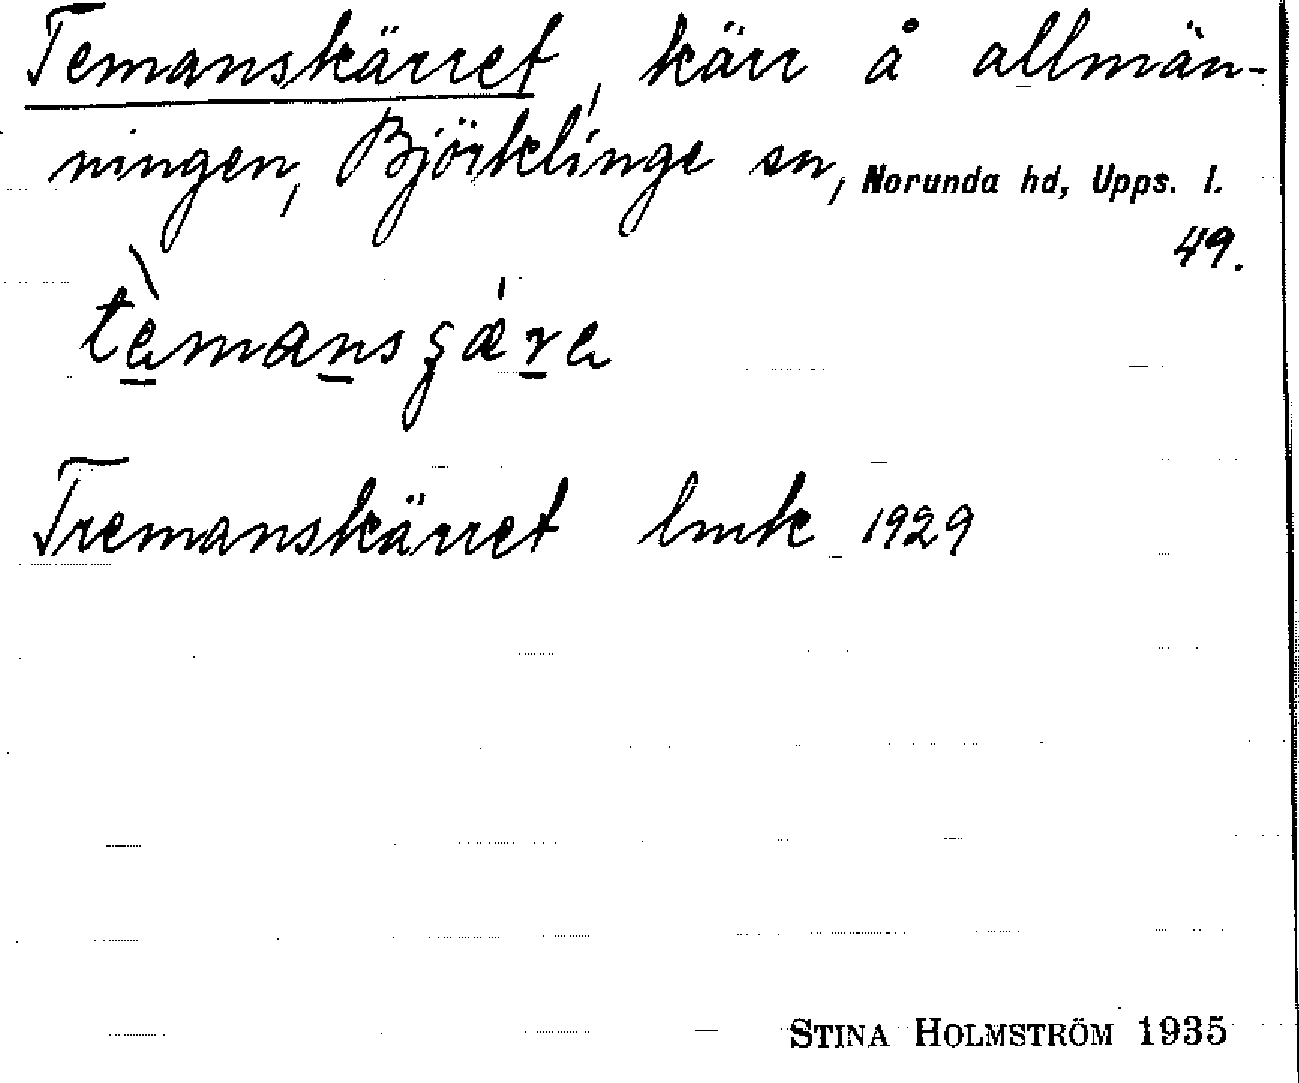 Temanskärret, kärr å allmän-
ningen, Björklinge sn, Norunda hd, Upps. l.
49.
Tremanskärret lmk 1929
STINA HOLMSTRÖM 1935